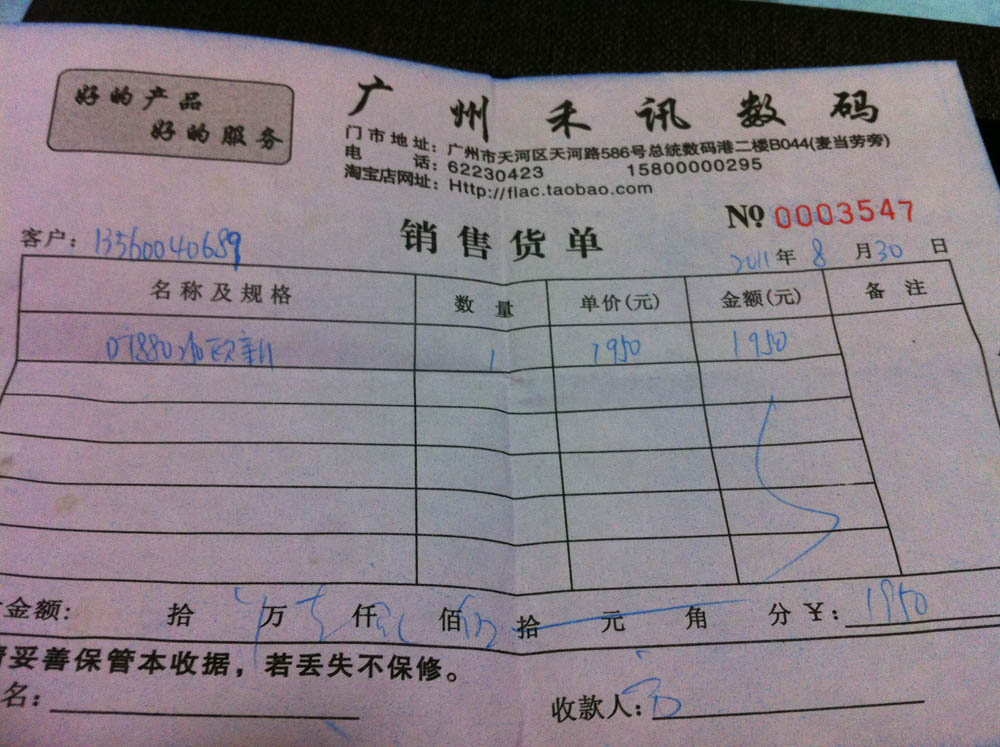 好的产品
好的服务
广州禾讯数码
门市地址：广州市天河区天河路586号总统数码港二楼B044(麦当劳旁)
电话：62230423 15800000295
淘宝店网址：Http://flac.taobao.com
№ 0003547
销售货单
客户：13560040689
2011年8月30日
名称及规格 数量 单价(元) 金额(元) 备注
DT880 1 1950 1950
金额： 拾 万 仟 佰 拾 元 角 分 ¥：1950
妥善保管本收据，若丢失不保修。
名：
收款人：